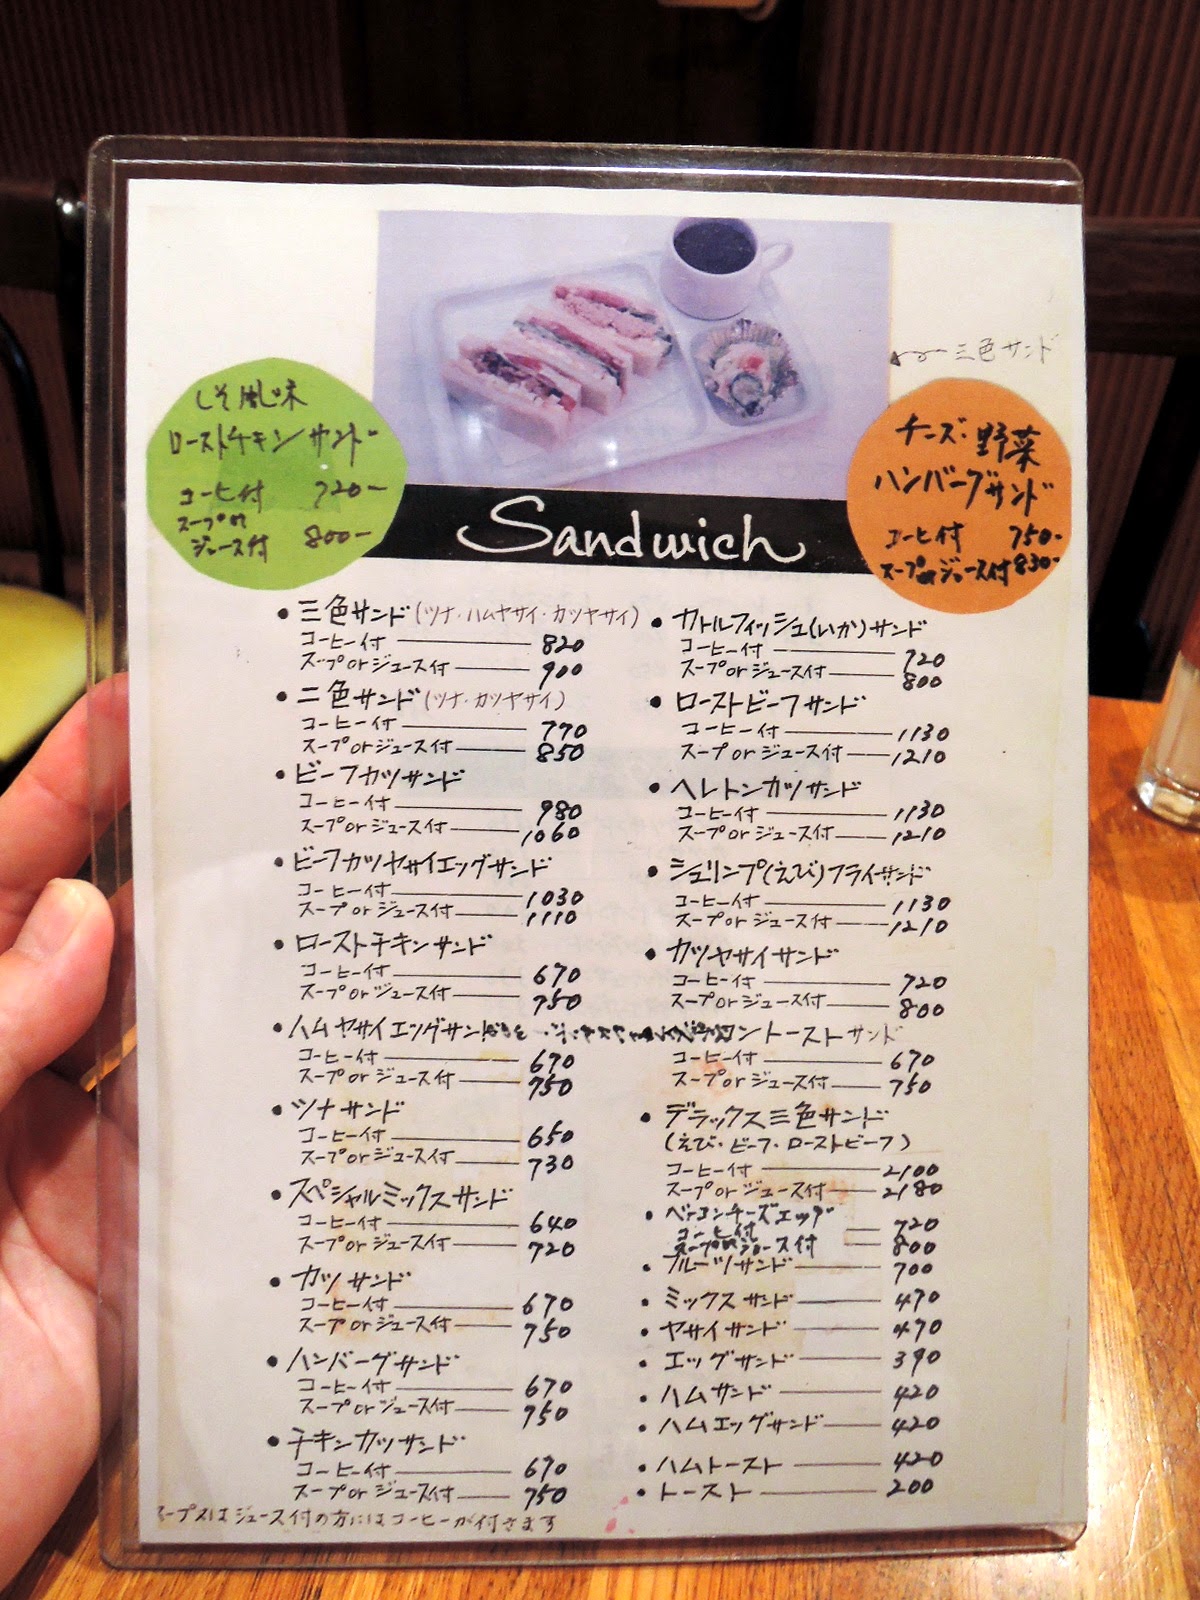 三色サンド
しそ風味
ローストチキンサンド
コーヒー付 720-
スープor
ジュース付 800-
チーズ・野菜
ハンバーグサンド
コーヒー付 750-
スープorジュース付 830-
Sandwich
・三色サンド(ツナ・ハムヤサイ・カツヤサイ)
コーヒー付 820
スープorジュース付 900
・二色サンド(ツナ・カツヤサイ)
コーヒー付 770
スープorジュース付 850
・ビーフカツサンド
コーヒー付 980
スープorジュース付 1060
・ビーフカツヤサイエッグサンド
コーヒー付 1030
スープorジュース付 1110
・ローストチキンサンド
コーヒー付 670
スープorジュース付 750
・ハムヤサイエッグサンド
コーヒー付 670
スープorジュース付 750
・ツナサンド
コーヒー付 650
スープorジュース付 730
・スペシャルミックスサンド
コーヒー付 640
スープorジュース付 720
・カツサンド
コーヒー付 670
スープorジュース付 750
・ハンバーグサンド
コーヒー付 670
スープorジュース付 750
・チキンカツサンド
コーヒー付 670
スープorジュース付 750
・カトルフィッシュ(いか)サンド
コーヒー付 720
スープorジュース付 800
・ローストビーフサンド
コーヒー付 1130
スープorジュース付 1210
・ヘレトンカツサンド
コーヒー付 1130
スープorジュース付 1210
・シュリンプ(えび)フライサンド
コーヒー付 1130
スープorジュース付 1210
・カツヤサイサンド
コーヒー付 720
スープorジュース付 800
トーストサンド
コーヒー付 670
スープorジュース付 750
・デラックス三色サンド
(えび・ビーフ・ローストビーフ)
コーヒー付 2100
スープorジュース付 2180
・ベーコンチーズエッグ
コーヒー付 720
スープorジュース付 800
・フルーツサンド 700
・ミックスサンド 470
・ヤサイサンド 470
・エッグサンド 390
・ハムサンド 420
・ハムエッグサンド 420
・ハムトースト 420
・トースト 200
ジュース付の方にはコーヒーが付きます